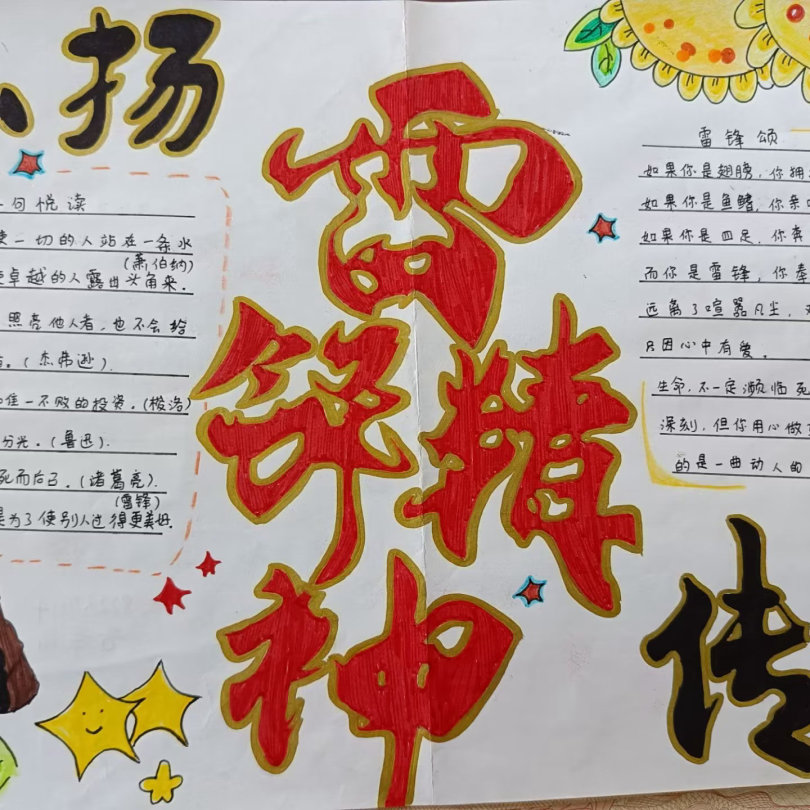 扬
雷
锋精
神
传
句悦读
一切的人站在一条水
(萧伯纳)
卓越的人露出头角来.
照亮他人者,也不会给
.(杰弗逊).
一不败的投资.(梭洛)
分光.(鲁迅).
死而后已.(诸葛亮).
(雷锋)
是为了使别人过得更美好.
雷锋颂
如果你是翅膀,你拥
如果你是鱼鳍,你亲
如果你是四足,你奔
而你是雷锋,你奉
远离了喧嚣凡尘,
只因心中有爱.
生命,不一定濒临死
深刻,但你用心做
的是一曲动人的